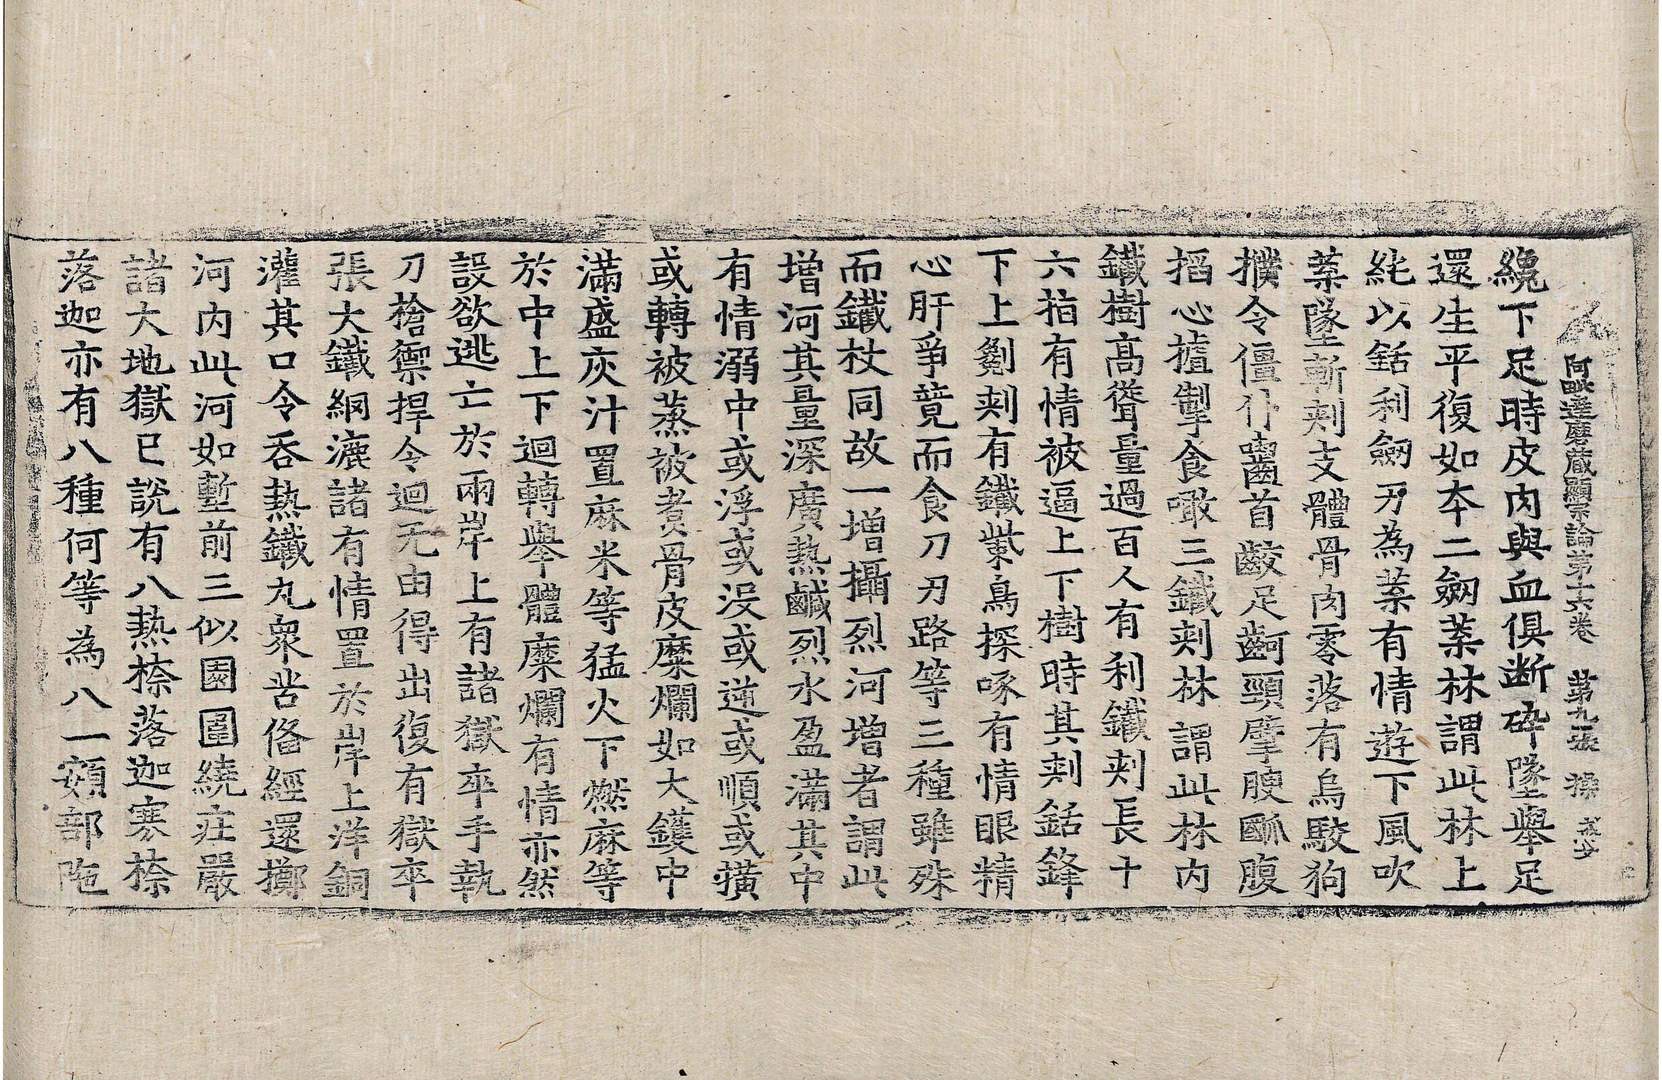 阿毗達磨藏顯宗論第十六卷 第九張 操
纔下足時皮肉與血俱断碎墜舉足
還生平復如本二劒葉林謂此林上
純以銛利劒刃為葉有情遊下風吹
葉墜斬刺支體骨肉零落有烏駮狗
撲令僵仆齧首齩足齗頸擘腴㼌腹
搯心攎掣食噉三鐵刺林謂此林內
鐵樹高聳量過百人有利鐵刺長十
六指有情被逼上下樹時其刺銛鋒
下上劖刺有鐵觜鳥探啄有情眼精
心肝爭競而食刀刃路等三種雖殊
而鐵杖同故一增攝烈河增者謂此
增河其量深廣熱鹹烈水盈滿其中
有情溺中或浮或没或逆或順或撗
或轉被蒸被煮骨皮糜爛如大鑊中
滿盛灰汁置麻米等猛火下燃麻等
於中上下迴轉舉體糜爛有情亦然
設欲逃亡於兩岸上有諸獄卒手執
刀槍禦捍令迴无由得出復有獄卒
張大鐵網漉諸有情置於岸上洋銅
灌其口令吞熱鐵丸衆苦俻經還擲
河內此河如塹前三似園圍繞庄嚴
諸大地獄已說有八熱㮈落迦寒㮈
落迦亦有八種何等為八一頞部陁